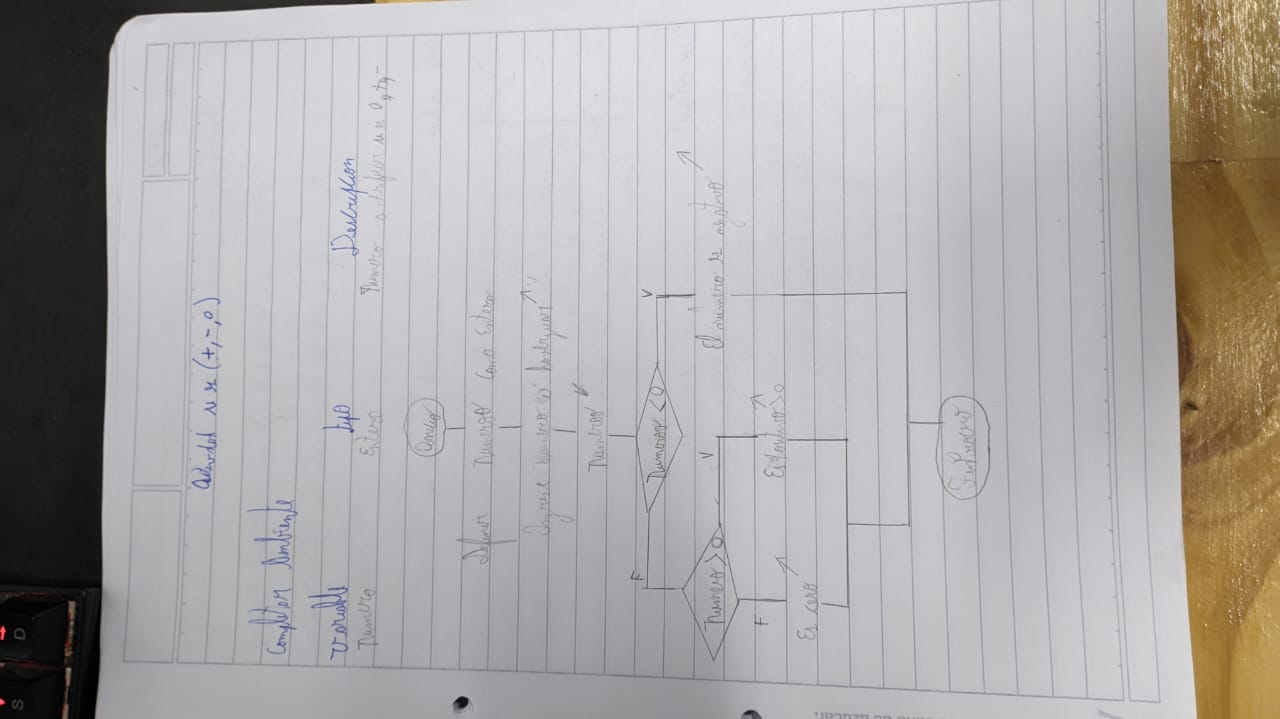 S D
Actividad si es (+,-,0)
Completar Ambiente
Variable tipo Descripcion
Numero Entero Numero a si es 0, +, -
Inicio
Definir Numero Como Entero
Ingrese numero a
Numero
F Numero <0 V
Numero >0 V El numero es negativo
F Es Positivo >0
Es cero
FinProceso
de azúcar.